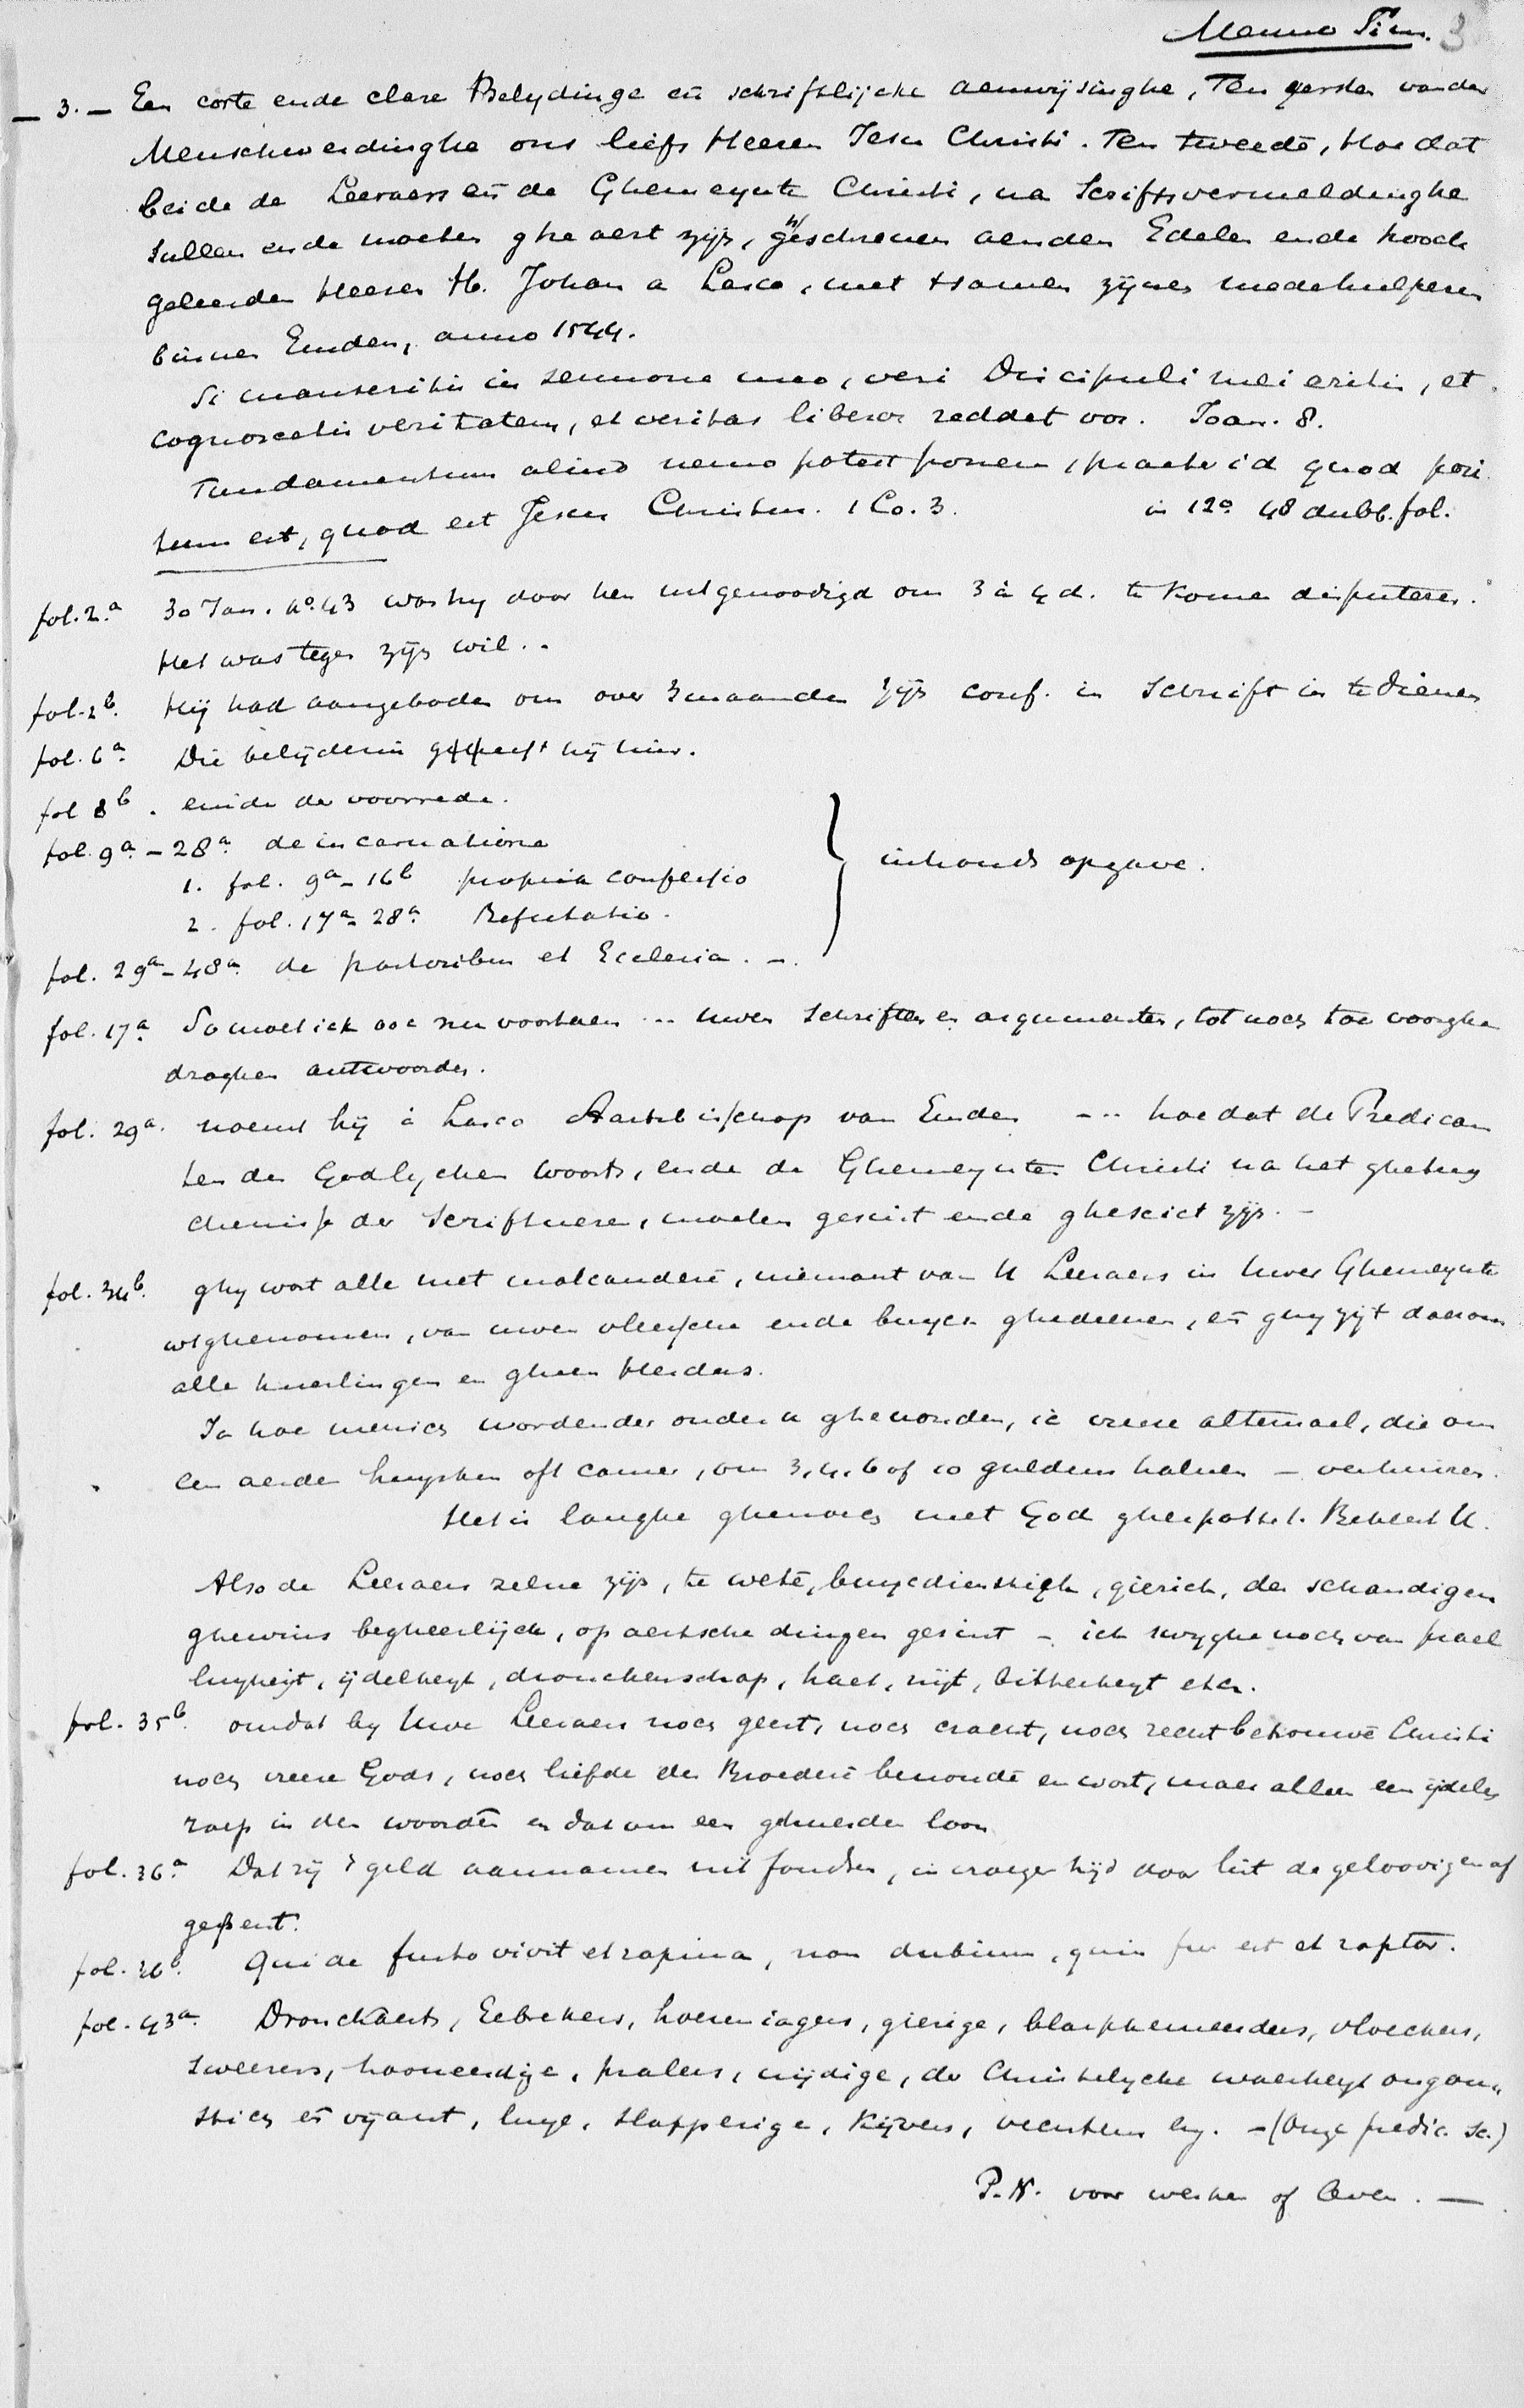 Menno Sim. 3
— 3. — Een corte ende clare Belydinge eñ schriftlijcke aenwijsinghe, Ten eersten vander
Menschwerdinghe ons liefs Heeren Jesu Christi. Ten tweedē, Hoe dat
beide de Leeraers eñ de Ghemeynte Christi, na Scriftsvermeldinghe
sullen ende moeten gheaert zijn, gheschreuen aenden Edelen ende hooch
geleerden Heeren H. Johan a Lasco, met tsamen zijnen medehulperen
binnen Emden, anno 1544.
Si manseritis in sermone meo, veri Discipuli mei eritis, et
cognoscetis veritatem, et veritas liberos reddet vos. Joan. 8.
Fundamentum aliud nemo potest ponere, praeter id quod posi
tum est, quod est Jesus Christus. 1 Co. 3. in 12o. 48 dubb. fol.
fol. 2.a 30 Jan. Ao. 43 was hy door hen uitgenoodigd om 3 à 4 d. te komen disputeren.
Het was tegen zijn wil..
fol. 2b. Hij had aangeboden om over 3 maanden zijn conf. in Schrift in te dienen
fol. 6a. Die belijdenis geeft hij hier.
fol 8b. einde der voorrede.
fol. 9a. – 28a. de incarnatione
1. fol. 9a – 16b propria confessio
inhouds opgave.
2. fol. 17a – 28a. Refutatio.
fol. 29a – 48a. de pastoribus et Ecclesia. –.
fol. 17a. So moet ick ooc nu voortaen ... uwen schriften en argumenten, tot noch toe voorghe
draghen antwoorden.
fol. 29a. noemt hij à Lasco Aartsbisschop van Emden --- hoe dat de Predican
ten des Godlycken woorts, ende de Ghemeynten Christi na het ghetuy
chenisse der Scriftueren, moeten gesint ende ghesciet zijn. –
fol. 34b. ghy wort alle met malcanderē, niemant van U Leeraers in uwer Ghemeynte
wtghenomen, van uwen vleessche ende buyck ghedreuen, eñ ghy zijt daerom
alle huerlingen en gheen Herders.
Ja hoe menich wordender onder u gheuonden, ic vreese altemael, die om
een aerden huysken oft camer, om 3, 4, 6 of 10 guldens haluen – verhuiren.
Het is langhe ghenoech met God ghespottet. Bekeert U.
Also de Leeraers zelue zijn, te wetē, buyckdienstigh, gierich, des schandigen
ghewins begheerlijck, op aertsche dingen gesint – ick swyghe noch van prael
luyheyt, ijdelheyt, dronckenschap, haet, nijt, bitterheyt etc.
fol. 35b. omdat by Uwe Leeraers noch geest, noch cracht, noch recht betrouwē Christi
noch vreese Gods, noch liefde der Broederē beuondē en wort, maer alleen een ijdelen
roep in den woordē en dat om een gehuerden loon
fol. 36a. Dat zij 't geld aannamen uit fondsen, in vroeger tijd door list de geloovigen af
geperst.
fol. 36b. Qui de furto vivit et rapina, non dubium, quin fur est et raptor.
fol. 43a. Dronckaerts, Eebrekers, hoereniagers, gierige, blasphemeerders, vloeckers,
sweerers, hooueerdige, pralers, nijdige, der Christelycke waerheyt ongon-
stich eñ vyant, luye, slapperige, kijvers, vechters ey. – (Onze predic. sc.)
P.N. voor werken of leven. —